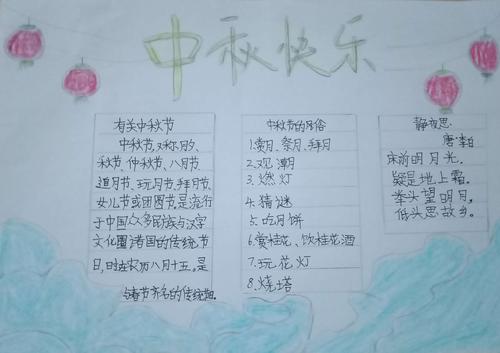 中秋快乐
有关中秋节
中秋节,又称月夕、
秋节、仲秋节、八月节
追月节、玩月节、拜月节、
女儿节或团圆节是流行
于中国众多民族与汉字
文化圈诸国的传统节
日,时在农历八月十五。是
与春节齐名的传统
中秋节的习俗
1.赏月、祭月、拜月
2.观潮
3.燃灯
4.猜谜
5.吃月饼
6.赏桂花、饮桂花酒
7.玩花灯
8.烧塔
静夜思
唐 李白
床前明月光,
疑是地上霜。
举头望明月,
低头思故乡。